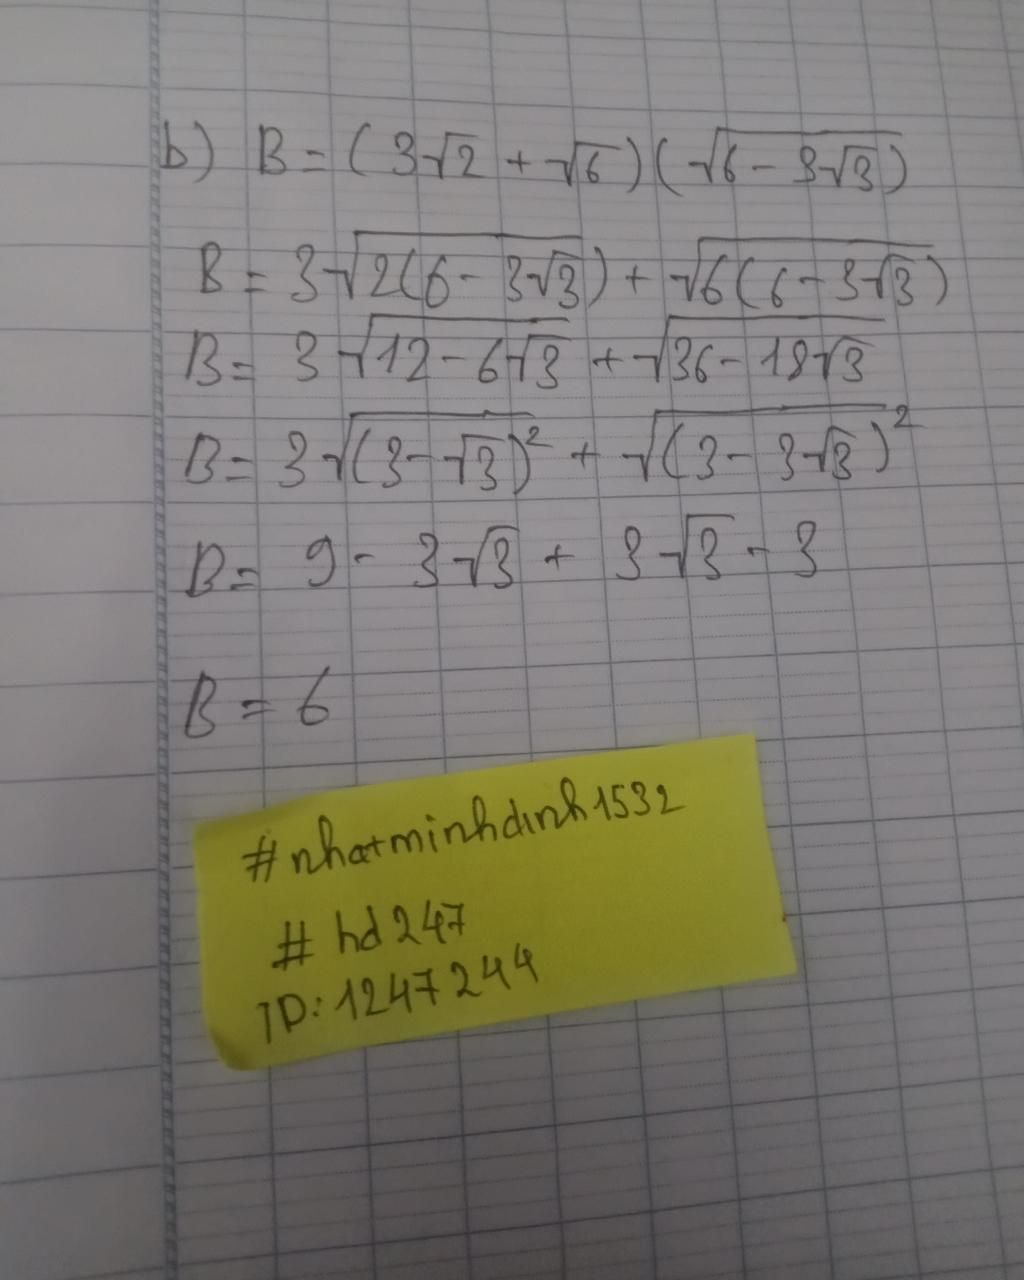 b) B = (3√2 + √6)(√(6 - 3√3))
B = 3√(2(6 - 3√3)) + √(6(6 - 3√3))
B = 3√(12 - 6√3) + √(36 - 18√3)
B = 3√((3 - √3)²) + √((3 - 3√3)²)
B = 9 - 3√3 + 3√3 - 3
B = 6
#nhatminhdinh1532
# hd247
ID: 1247244